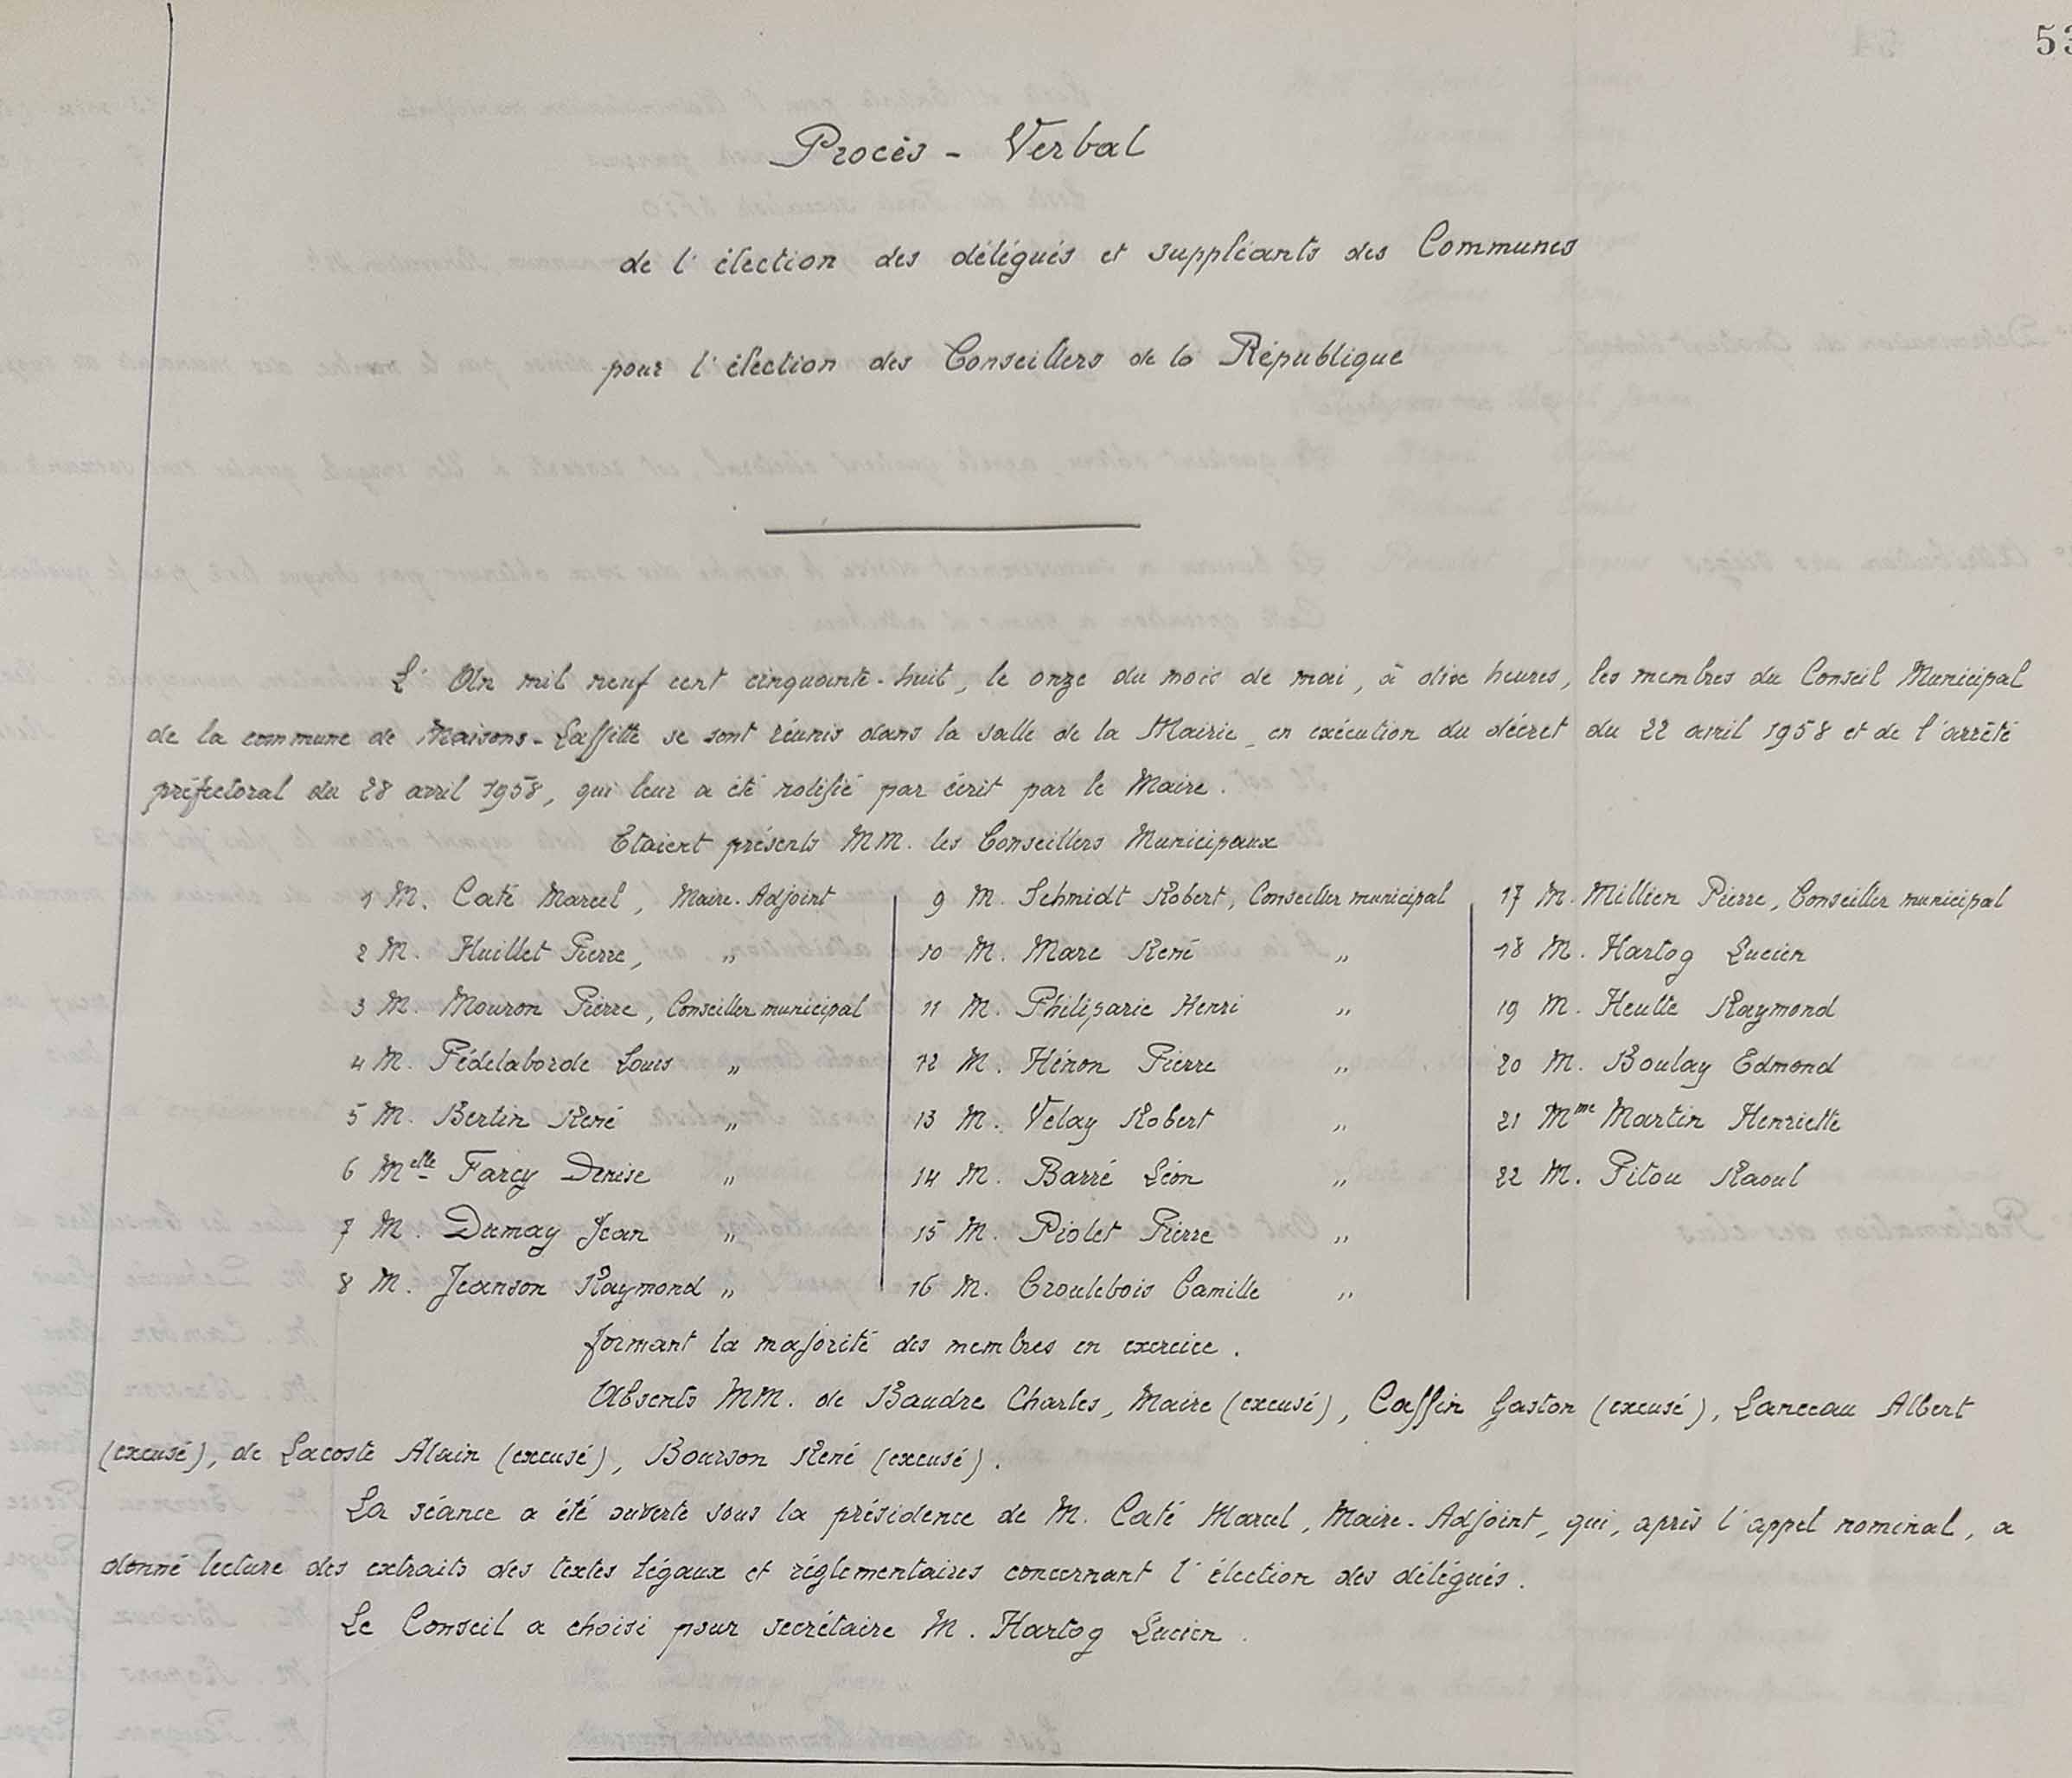 53
Procès - Verbal
de l'élection des délégués et suppléants des Communes
pour l'élection des Conseillers de la République
L'An mil neuf cent cinquante-huit, le onze du mois de mai, à dix heures, les membres du Conseil Municipal
de la commune de Maisons-Laffitte se sont réunis dans la salle de la Mairie, en exécution du décret du 22 avril 1958 et de l'arrêté
préfectoral du 28 avril 1958, qui leur a été notifié par écrit par le Maire.
Etaient présents MM. les Conseillers Municipaux
1 M. Caté Marcel, Maire-Adjoint
2 M. Huillet Pierre, "
3 M. Mouron Pierre, Conseiller municipal
4 M. Pédelaborde Louis "
5 M. Bertin René "
6 Melle Farcy Denise "
7 M. Damay Jean "
8 M. Jeanson Raymond "
9 M. Schmidt Robert, Conseiller municipal
10 M. Marc René "
11 M. Philiparie Henri "
12 M. Hénon Pierre "
13 M. Velay Robert "
14 M. Barré Léon "
15 M. Piolet Pierre "
16 M. Croulebois Camille "
17 M. Millien Pierre, Conseiller municipal
18 M. Hartog Lucien
19 M. Heulle Raymond
20 M. Boulay Edmond
21 Mme Martin Henriette
22 M. Pitou Raoul
formant la majorité des membres en exercice.
Absents MM. de Baudre Charles, Maire (excusé), Caffin Gaston (excusé), Lanceau Albert
(excusé), de Lacoste Alain (excusé), Bourson René (excusé).
La séance a été ouverte sous la présidence de M. Caté Marcel, Maire-Adjoint, qui, après l'appel nominal, a
donné lecture des extraits des textes légaux et réglementaires concernant l'élection des délégués.
Le Conseil a choisi pour secrétaire M. Hartog Lucien.